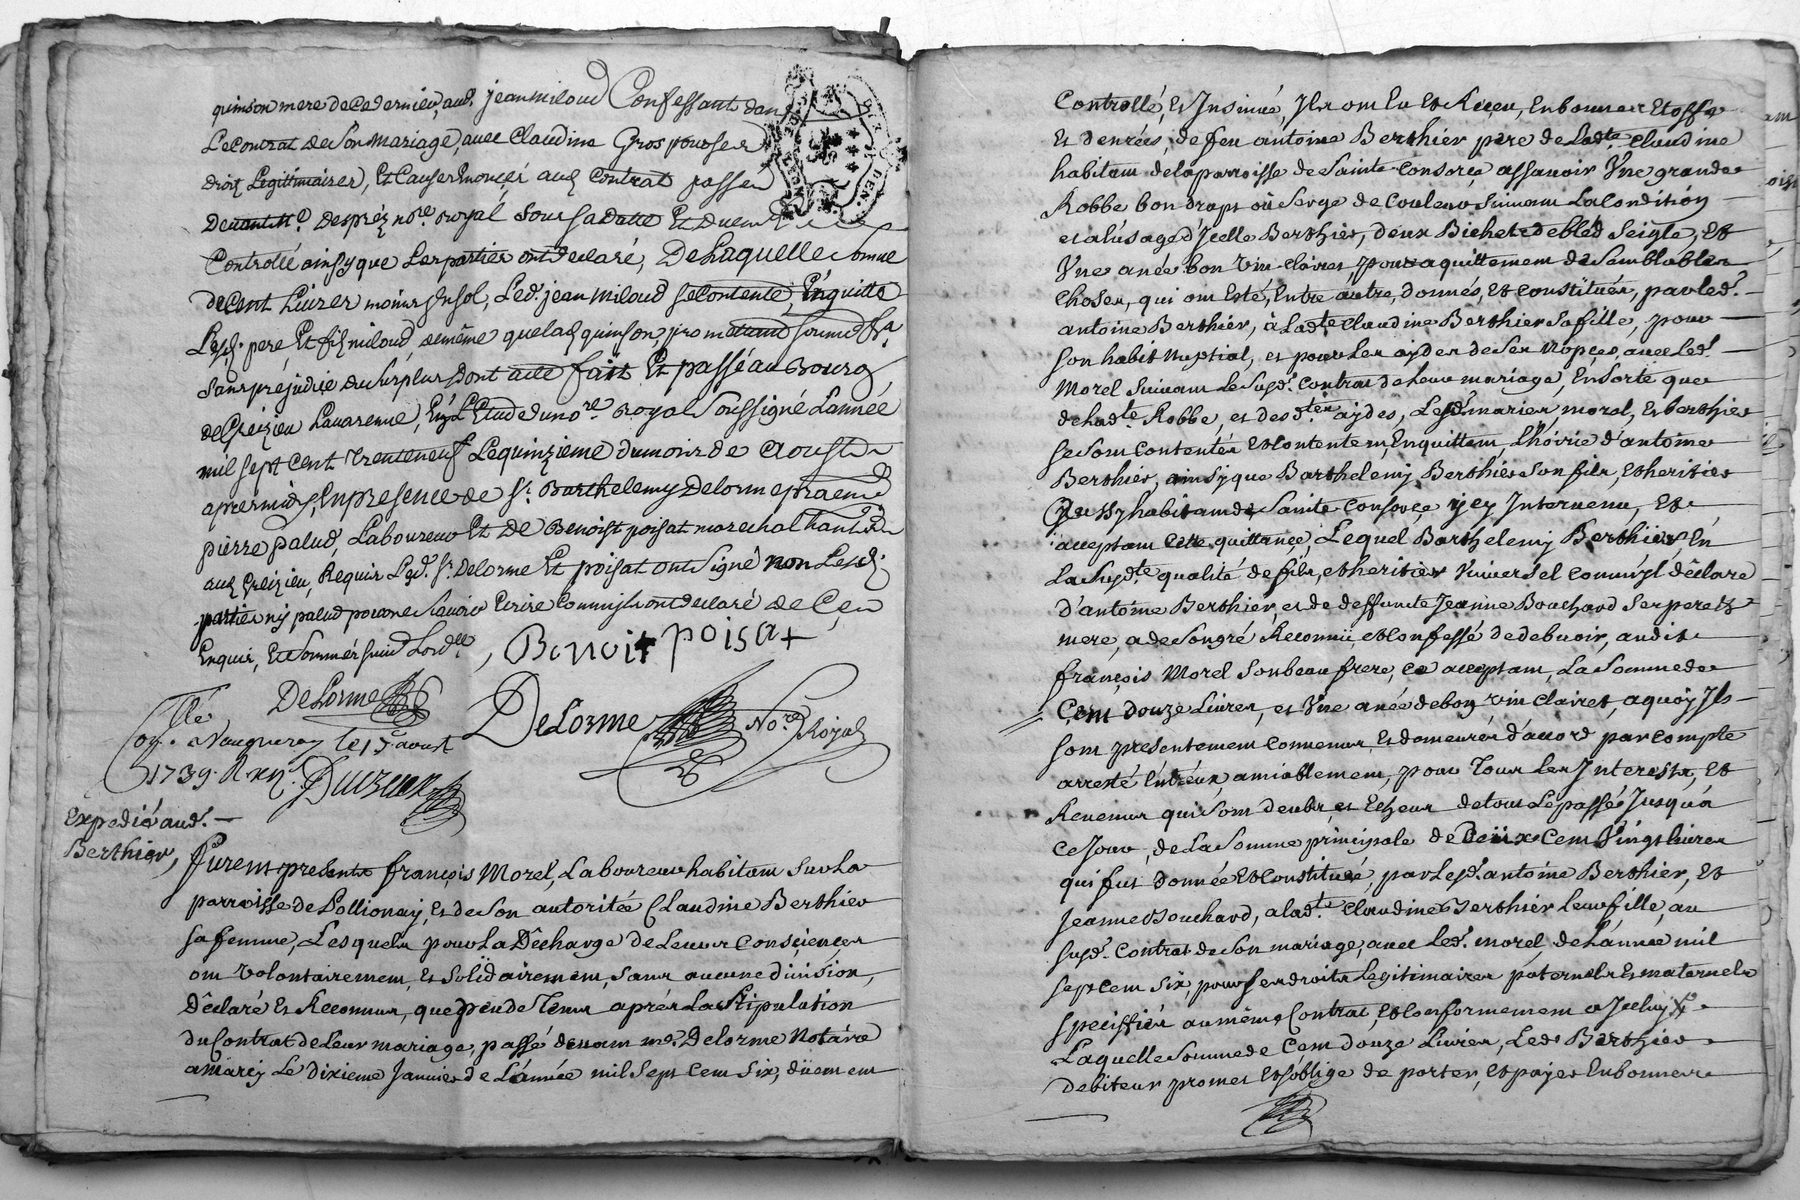 quinson mere de ce dernier, aud. jean miloud Confessant dans
Le Contrat de Son mariage, avec Claudine Gros pour ses
droits Legittimaires, Et Causes Enoncés aud Contrat passé
Devant Me Desprèz nore. royal Sous Sa Datte Et Duement
Controllé ainsy que Les parties ont declaré, De Laquelle Somme
de Cent Livres moins un sol, Led. jean miloud se contente, En quitte
Lesd. pere Et fils miloud, de même que lad quinson, promettant
Sans prejudice du Surplus, dont acte fait Et passé au Bourg
de Greizieu Lavarenne, En L'Etude du nore. royal Soussigné L'année
mil sept Cent Trente neuf Le quinzieme du mois de Aoust
apres midy, En presence de Sr. Barthelemy Delorme praticien
pierre palud, Laboureur Et De Benoist poisat marechal
aud Greizieu, Requis Led. Sr. Delorme Et poisat ont Signé non Lesd.
parties ny palud pour ne Scavoir Ecrire Comme ils ont declaré de Ce
Enquis, Et Sommés suivt Lordce
Benoit poisat
DeLorme
DeLorme Nore Royal
Collé. a Vaugneray le 15 aoust
1739. R
Expedié aud. —
Berthier,
Furent presents françois Morel, Laboureur habitant Sur La
parroisse de Pollionay, et de Son autorité Claudine Berthier
Sa femme, Lesquels pour La Décharge de Leurs Consciences
ont Volontairement, et Solidairement, Sans aucune division,
Déclaré et Reconnu, que peu de Tems aprés La Stipulation
du Contrat de Leur mariage, passé devant me. Delorme Notaire
a marcy Le Dixieme Janvier de L'année mil Sept Cent Six, düement
Controllé, Et Insinué, Ils ont Eu Et Reçeu, En bonnes Etoffes
Et denrées, de feu antoine Berthier pere de Ladte. Claudine
habitant de la parroisse de Sainte Consorçe assavoir Une grande
Robbe bon draps ou Serge de Couleur Suivant La Condition
et a l'usage d'Icelle Berthier, deux Bichets de bled Seigle, Et
Une anée bon vin Clairet, pour aquittement de Semblables
Choses, qui ont Esté, Entre autre, donnés, Et Constituées, par led.
antoine Berthier, à Ladte Claudine Berthier Sa fille, pour
Son habit Nuptial, et pour Les aydes de Ses Nopçes avec Led.
Morel Suivant Le Susd. Contrat de Leur mariage, En Sorte que
de Ladte. Robbe, et desdtes aydes, Lesd. mariés morel, Et berthier
Se Sont Contentés Et Contentent, En quittent, L'hoirie d'antoine
Berthier, ainsy que Barthelemy Berthier Son fils, Et heritier
Aussy habitant de Sainte Consorçe icy Intervenu, Et
acceptant Cette quittançe, Lequel Barthelemy Berthier En
La Susdte qualité de fils, et heritier Universel Comm'il déclare
d'antoine Berthier, et de deffuncte Jeanne Bouchard Ses pere Et
mere, a de Son gré Reconnu, et Confessé de debvoir, audit
françois Morel Son beau frere, ce acceptant, La Somme de
Cent douze Livres, et Une anée de bon vin Clairet, a quoy Ils
Sont presentement Convenus, Et demeurés d'accord par Compte
arresté Entr'eux amiablement, pour Tous Les Interests, Et
Revenus qui Sont deubs, et Echeus de tout Le passé Jusqu'a
Ce Jour, de La Somme principale de Deüx Cent Vingt livres
qui fut donnée Et Constituée, par Lesd. antoine Berthier, Et
Jeanne Bouchard, a ladte. Claudine Berthier Leur fille, au
Susd. Contrat de Son mariage, avec Led. morel de L'année mil
Sept Cent Six, pour Ses droits Legitimaires paternels Et maternels
Speciffiés au même Contrat, Et Conformement a Iceluy
Laquelle Somme de Cent douze Livres, Led. Berthier
debiteur promet Et s'oblige de porter, et payer En bonnes